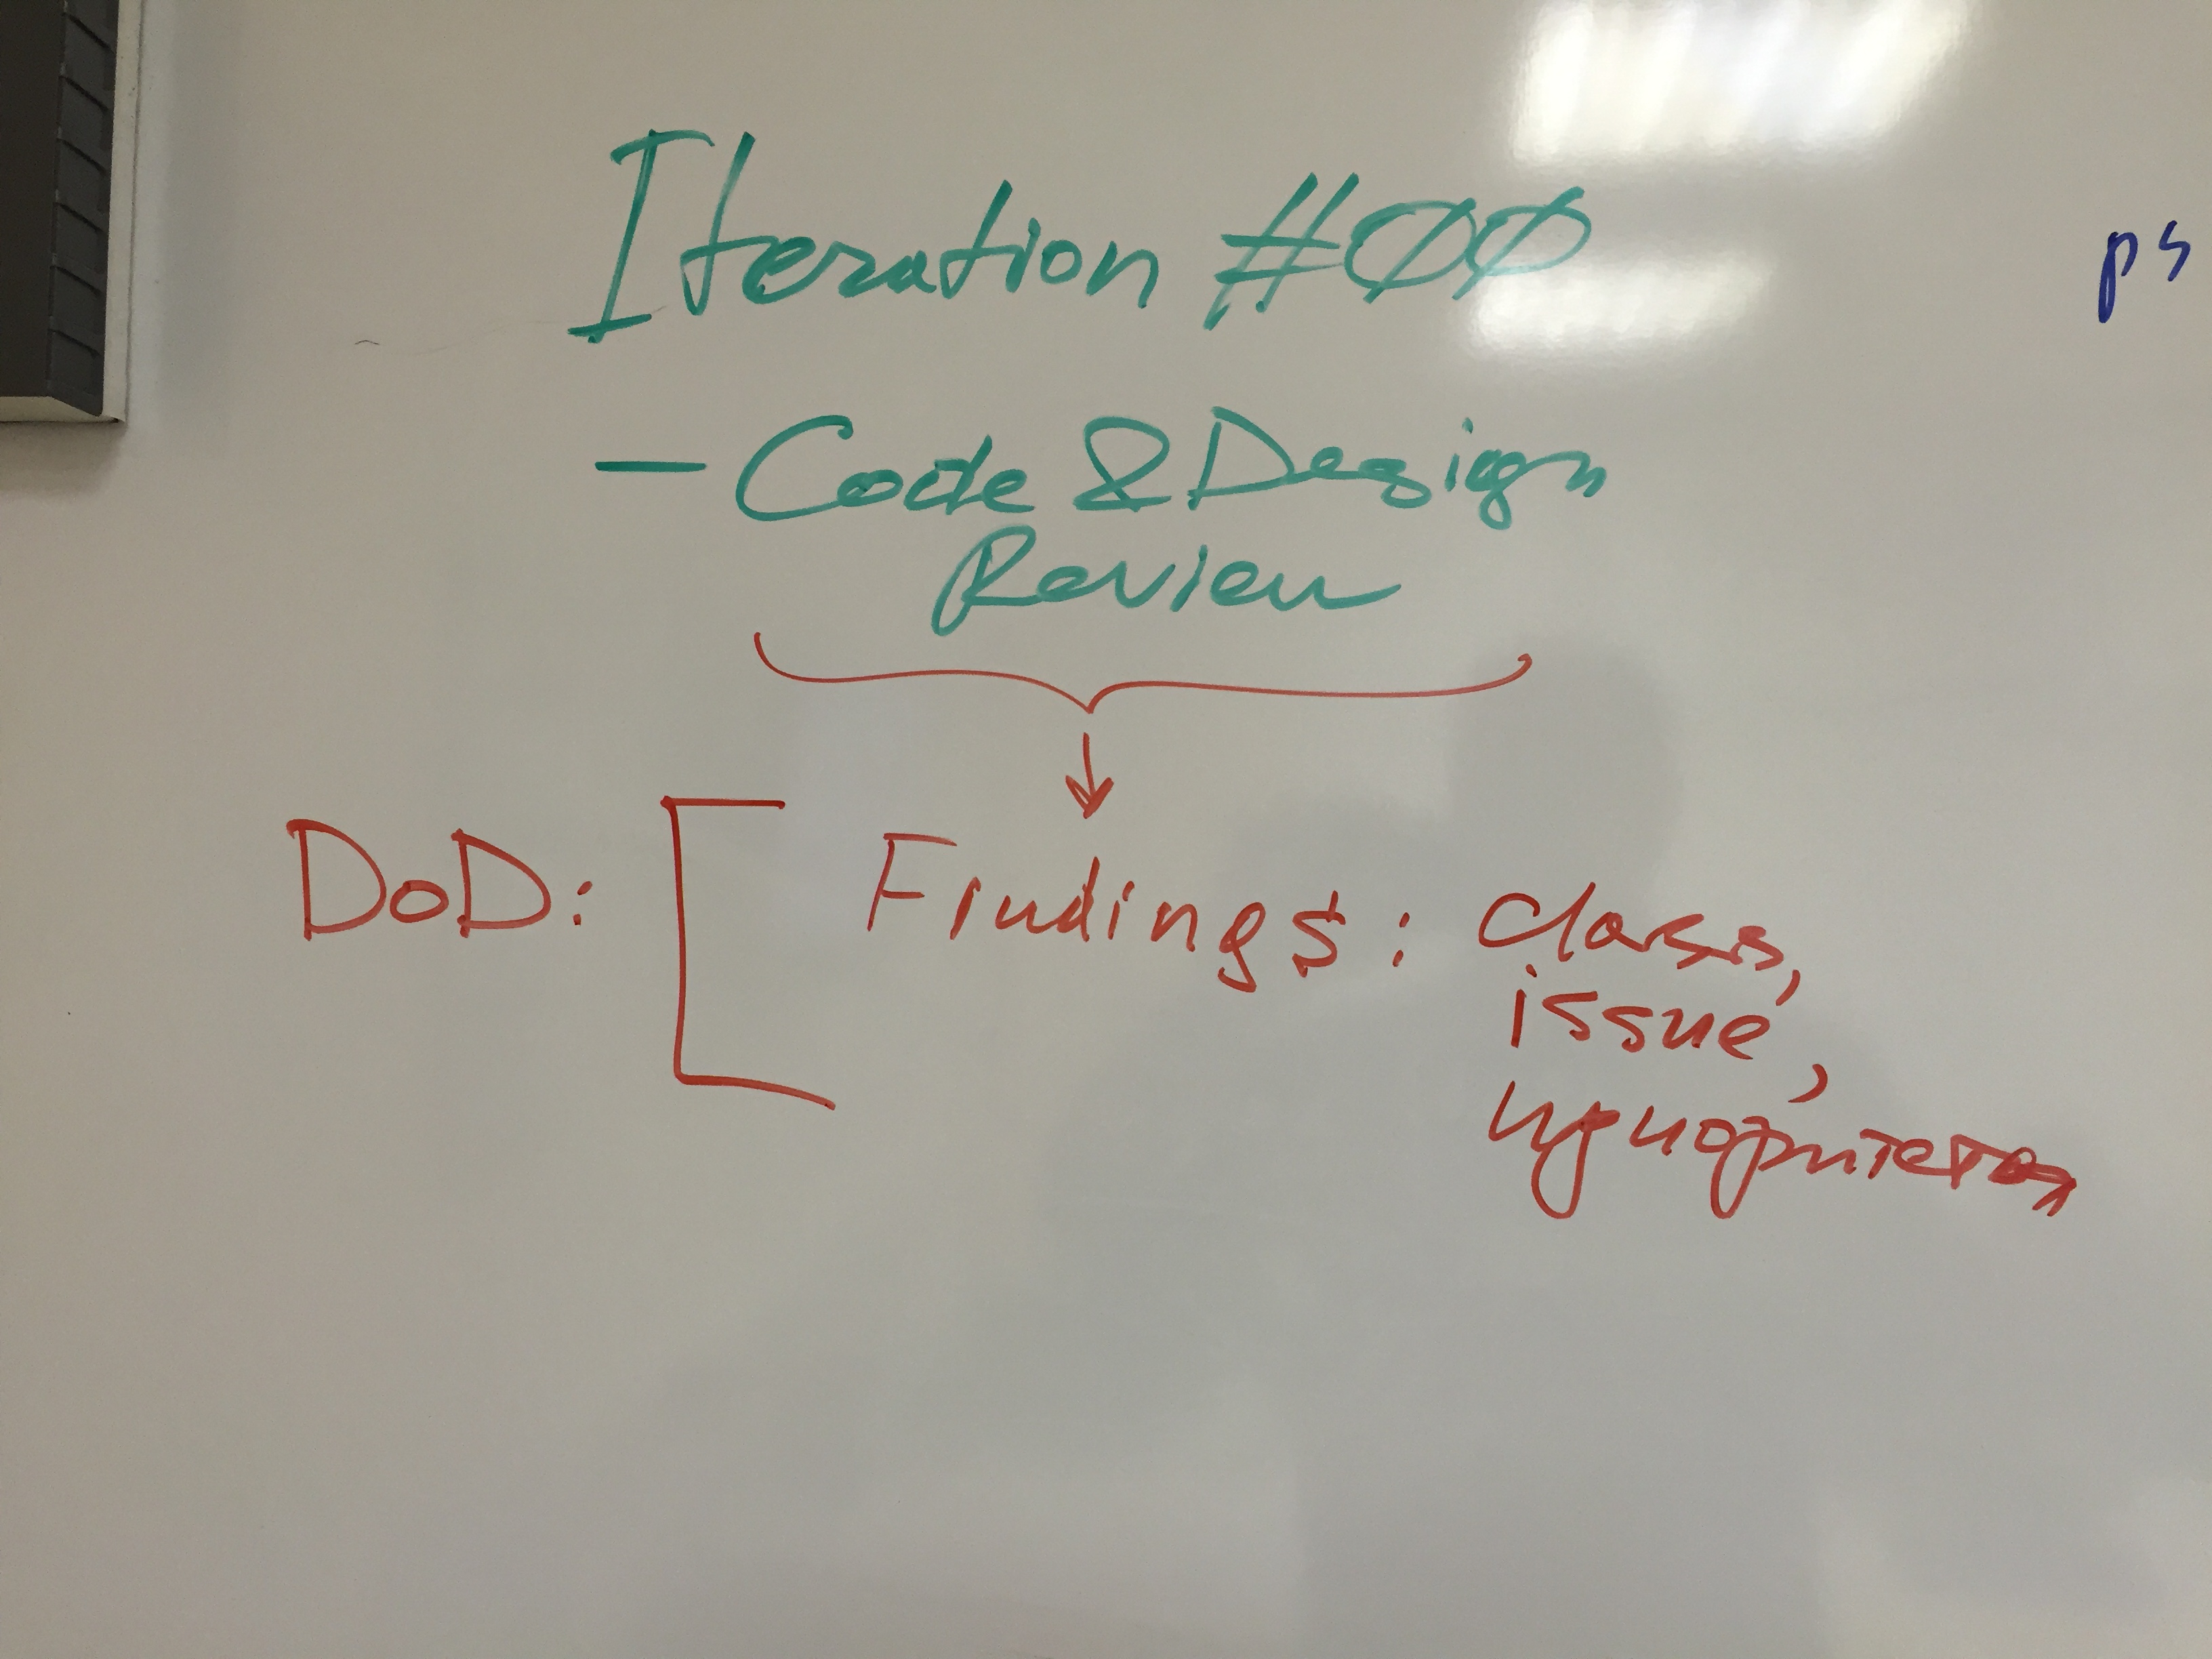 Iteration #00
— Code & Design
Review
DoD: Findings: class,
issue,